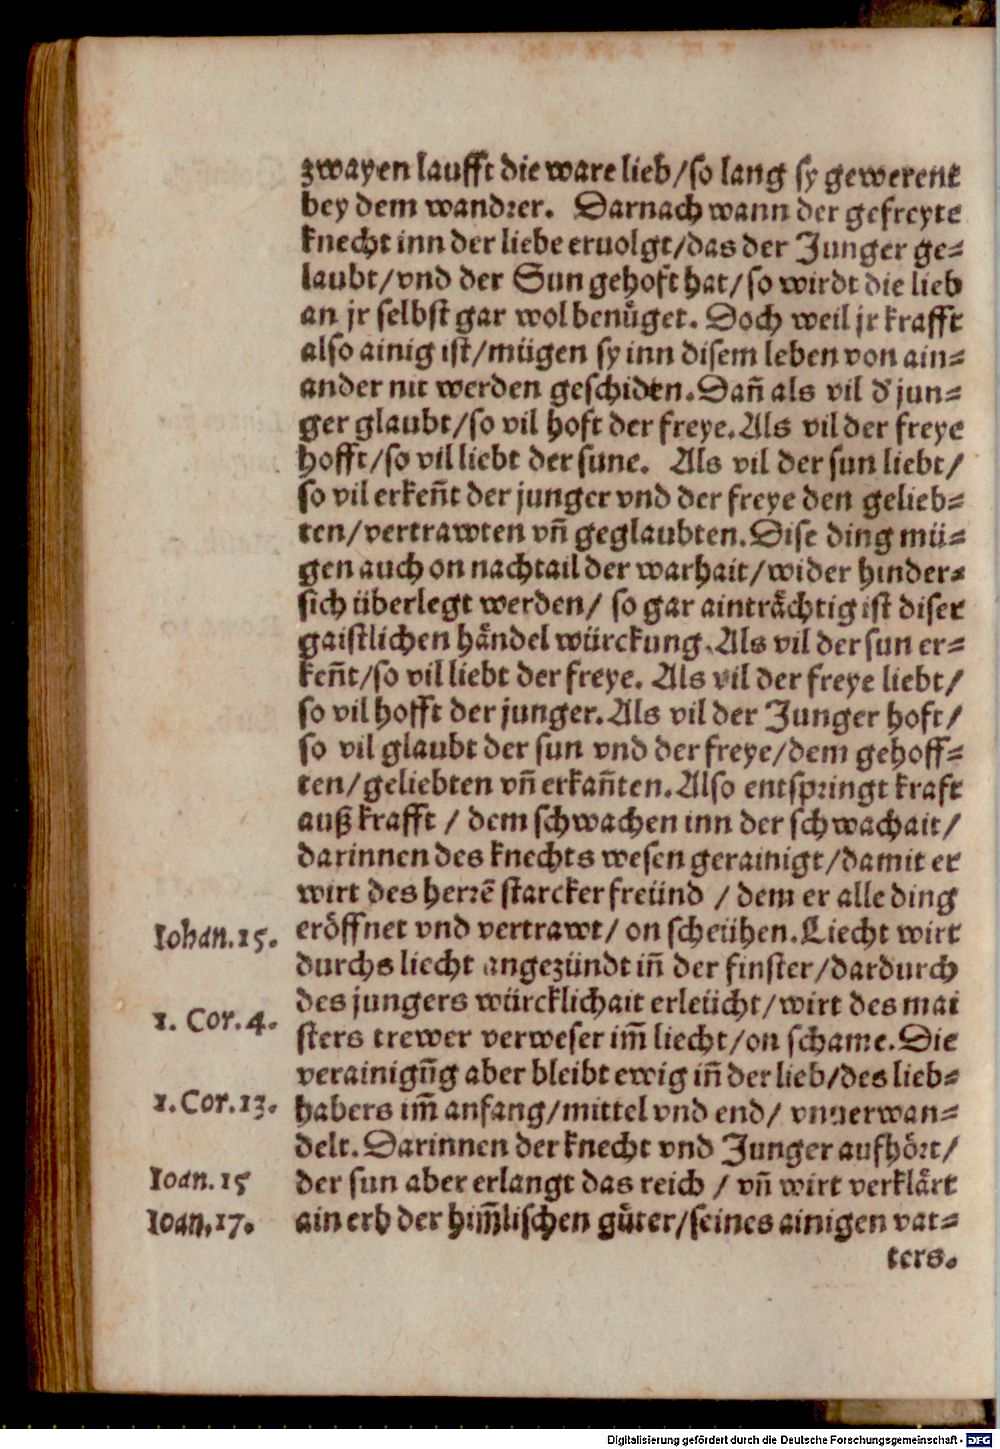 zwayen laufft die ware lieb/so lang sy gewerent
bey dem wandrer. Darnach wann der gefreyte
knecht inn der liebe eruolgt/das der Junger ge-
laubt/vnd der Sun gehoft hat/so wirdt die lieb
an jr selbst gar wol benuͤget. Doch weil jr krafft
also ainig ist/mügen sy inn disem leben von ain-
ander nit werden geschiden. Dañ als vil d' jun-
ger glaubt/so vil hoft der freye. Als vil der freye
hofft/so vil liebt der sune. Als vil der sun liebt/
so vil erkeñt der junger vnd der freye den gelieb-
ten/vertrawten vñ geglaubten. Dise ding mü-
gen auch on nachtail der warhait/wider hinder-
sich überlegt werden/ so gar ainträchtig ist diser
gaistlichen händel würckung. Als vil der sun er-
keñt/so vil liebt der freye. Als vil der freye liebt/
so vil hofft der junger. Als vil der Junger hoft/
so vil glaubt der sun vnd der freye/dem gehoff-
ten/geliebten vñ erkañten. Also entspringt kraft
auß krafft / dem schwachen inn der schwachait/
darinnen des knechts wesen gerainigt/damit er
wirt des herrē starcker freünd / dem er alle ding
Iohan.15. eröffnet vnd vertrawt/ on scheühen. Liecht wirt
durchs liecht angezündt iñ der finster/dardurch
des jungers würcklichait erleücht/wirt des mai
1. Cor. 4. sters trewer verweser im̄ liecht/on schame. Die
verainigūg aber bleibt ewig iñ der lieb/des lieb-
1. Cor. 13. habers im̄ anfang/mittel vnd end/ vnuerwan-
delt. Darinnen der knecht vnd Junger aufhört/
Ioan. 15 der sun aber erlangt das reich / vñ wirt verklärt
Ioan. 17. ain erb der him̄lischen guͤter/seines ainigen vat-
ters.
Digitalisierung gefördert durch die Deutsche Forschungsgemeinschaft - DFG